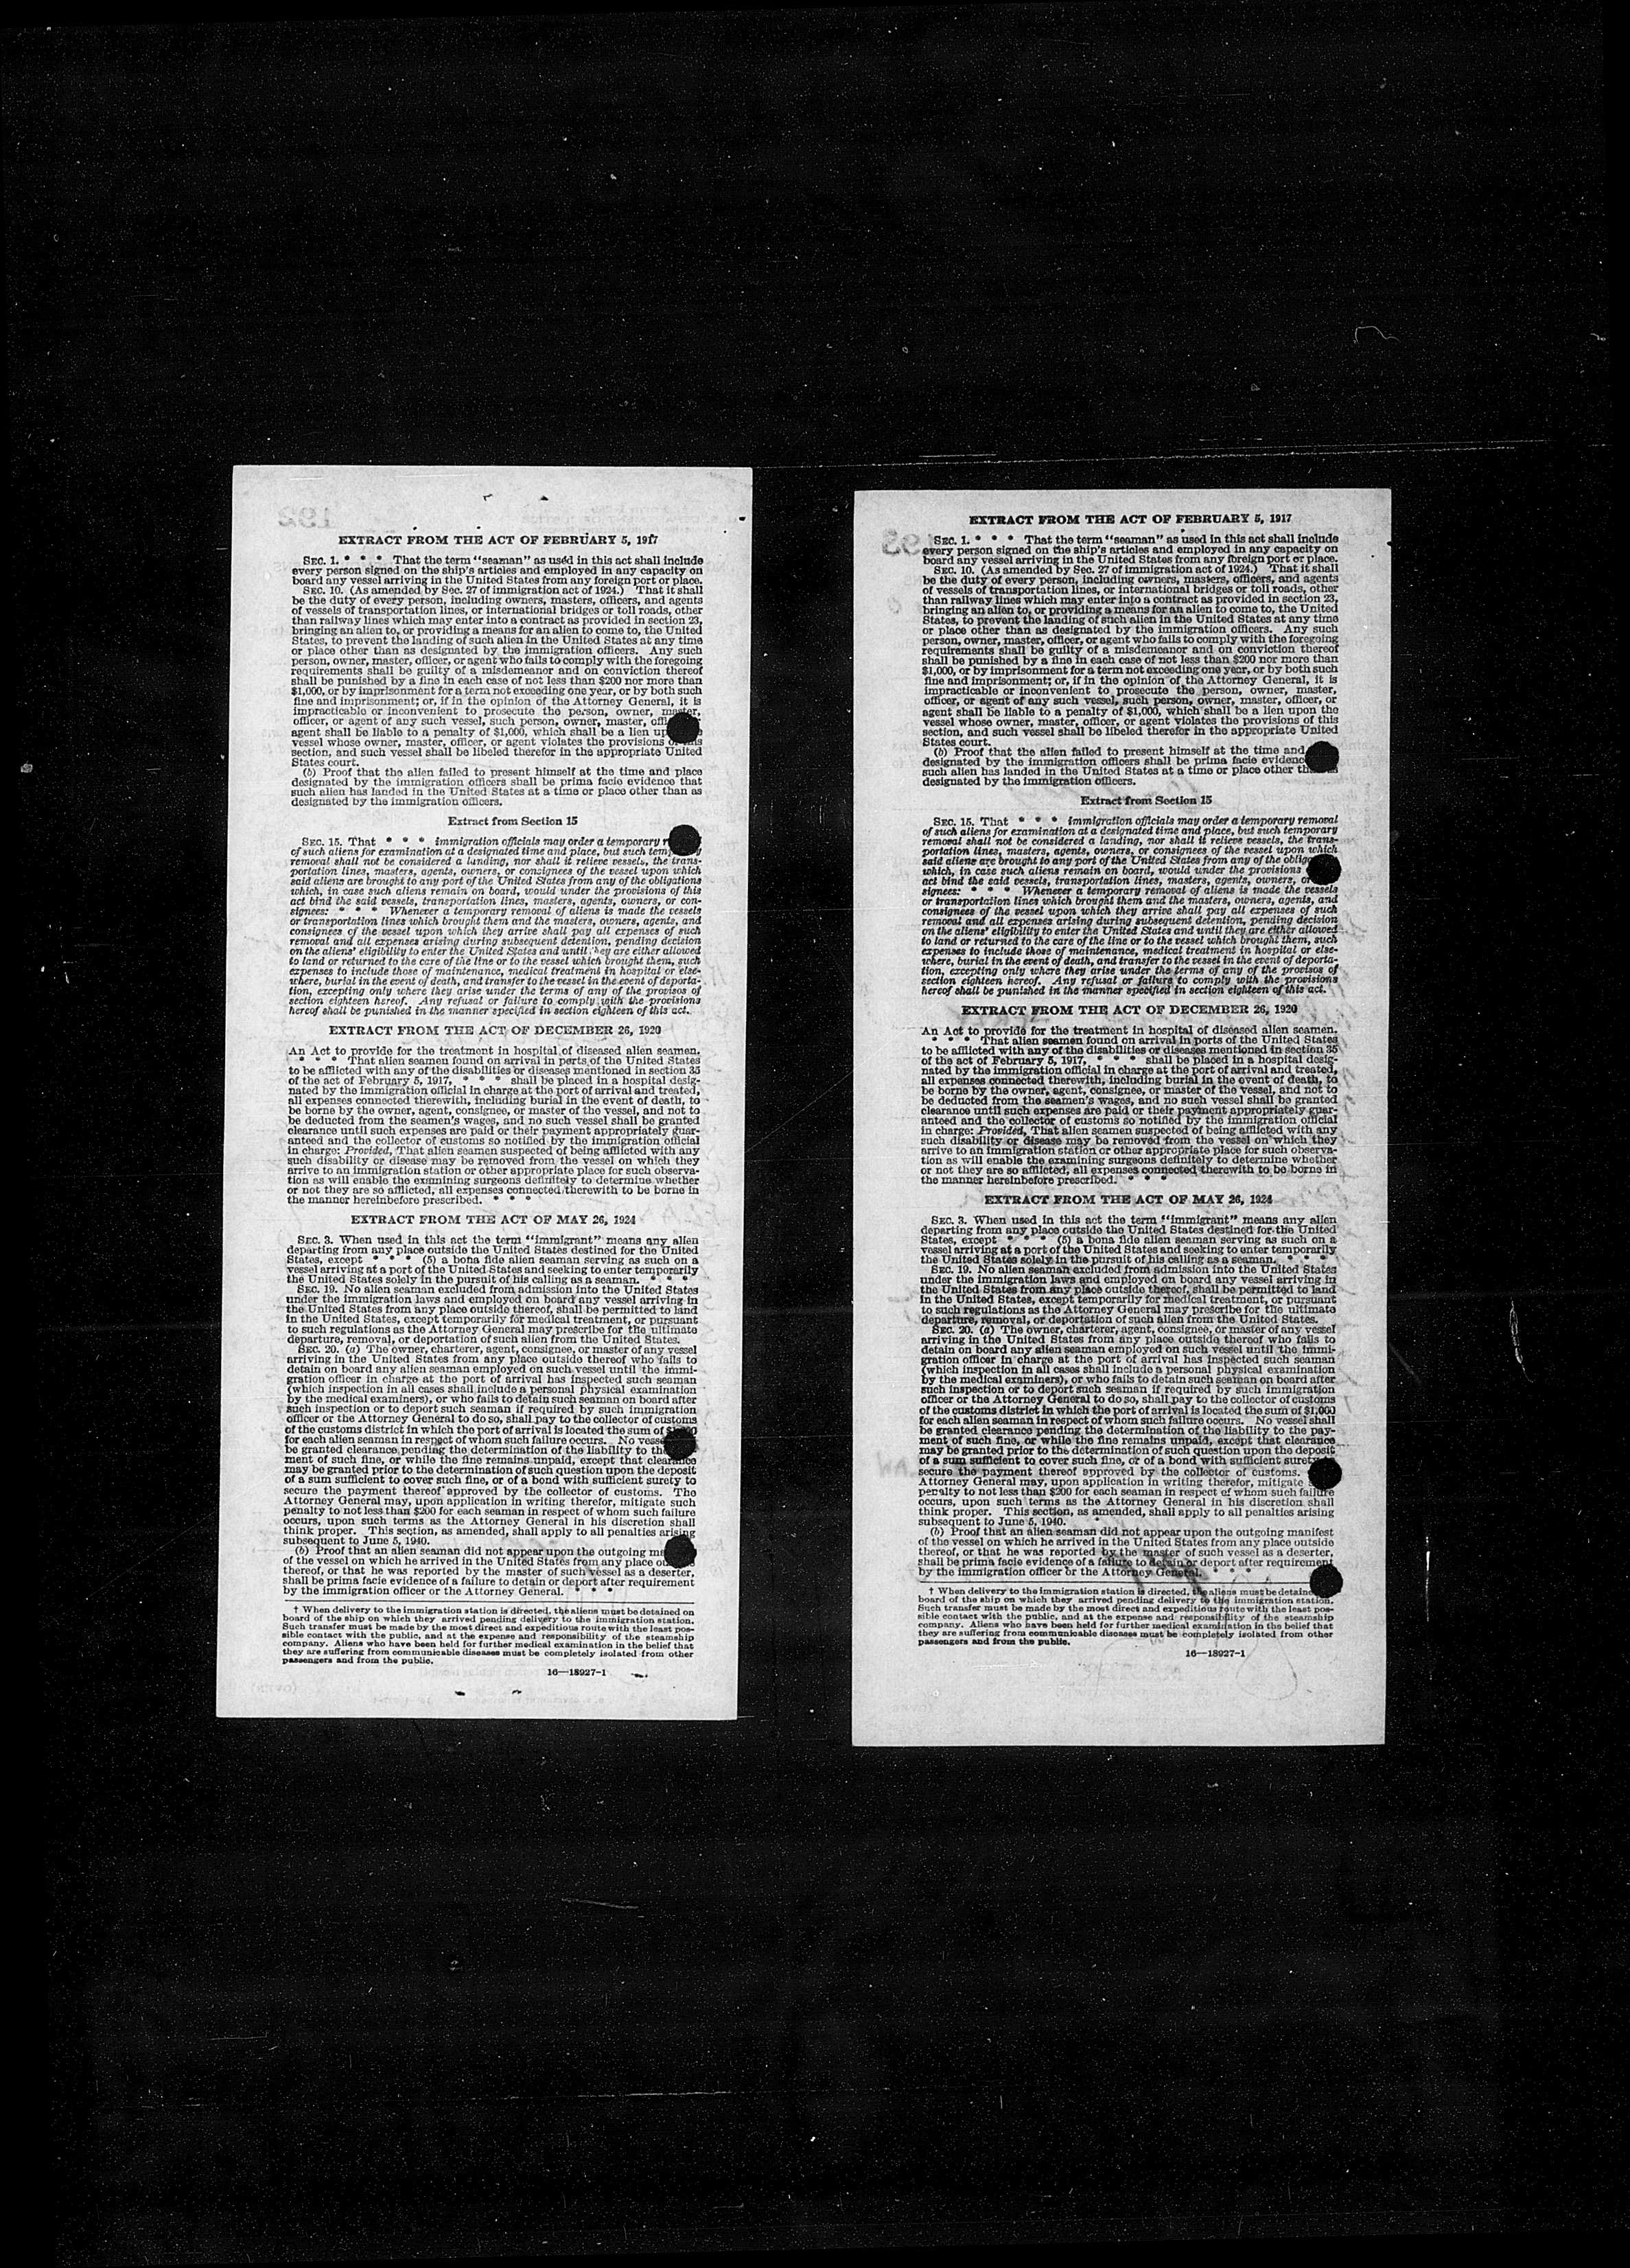 EXTRACT FROM THE ACT OF FEBRUARY 5, 1917
SEC. 1. * * * That the term "seaman" as used in this act shall include
every person signed on the ship's articles and employed in any capacity on
board any vessel arriving in the United States from any foreign port or place.
SEC. 10. (As amended by Sec. 27 of immigration act of 1924.) That it shall
be the duty of every person, including owners, masters, officers, and agents
of vessels of transportation lines, or international bridges or toll roads, other
than railway lines which may enter into a contract as provided in section 23,
bringing an alien to, or providing a means for an alien to come to, the United
States, to prevent the landing of such alien in the United States at any time
or place other than as designated by the immigration officers. Any such
person, owner, master, officer, or agent who fails to comply with the foregoing
requirements shall be guilty of a misdemeanor and on conviction thereof
shall be punished by a fine in each case of not less than $200 nor more than
$1,000, or by imprisonment for a term not exceeding one year, or by both such
fine and imprisonment; or, if in the opinion of the Attorney General, it is
impracticable or inconvenient to prosecute the person, owner, master,
officer, or agent of any such vessel, such person, owner, master,
agent shall be liable to a penalty of $1,000, which shall be a lien
vessel whose owner, master, officer, or agent violates the provisions of this
section, and such vessel shall be libeled therefor in the appropriate United
States court.
(b) Proof that the alien failed to present himself at the time and place
designated by the immigration officers shall be prima facie evidence that
such alien has landed in the United States at a time or place other than as
designated by the immigration officers.
Extract from Section 15
SEC. 15. That * * * immigration officials may order a temporary
of such aliens for examination at a designated time and place, but such
removal shall not be considered a landing, nor shall it relieve vessels, the trans-
portation lines, masters, agents, owners, or consignees of the vessel upon which
said aliens are brought to any port of the United States from any of the obligations
which, in case such aliens remain on board, would under the provisions of this
act bind the said vessels, transportation lines, masters, agents, owners, or con-
signees: * * * Whenever a temporary removal of aliens is made the vessels
or transportation lines which brought them and the masters, owners, agents, and
consignees of the vessel upon which they arrive shall pay all expenses of such
removal and all expenses arising during subsequent detention, pending decision
on the aliens' eligibility to enter the United States and until they are either allowed
to land or returned to the care of the line or to the vessel which brought them, such
expenses to include those of maintenance, medical treatment in hospital or else-
where, burial in the event of death, and transfer to the vessel in the event of deporta-
tion, excepting only where they arise under the terms of any of the provisos of
section eighteen hereof. Any refusal or failure to comply with the provisions
hereof shall be punished in the manner specified in section eighteen of this act.
EXTRACT FROM THE ACT OF DECEMBER 26, 1920
An Act to provide for the treatment in hospital of diseased alien seamen.
* * * That alien seamen found on arrival in ports of the United States
to be afflicted with any of the disabilities or diseases mentioned in section 35
of the act of February 5, 1917, * * * shall be placed in a hospital desig-
nated by the immigration official in charge at the port of arrival and treated,
all expenses connected therewith, including burial in the event of death, to
be borne by the owner, agent, consignee, or master of the vessel, and not to
be deducted from the seamen's wages, and no such vessel shall be granted
clearance until such expenses are paid or their payment appropriately guar-
anteed and the collector of customs so notified by the immigration official
in charge: Provided, That alien seamen suspected of being afflicted with any
such disability or disease may be removed from the vessel on which they
arrive to an immigration station or other appropriate place for such observa-
tion as will enable the examining surgeons definitely to determine whether
or not they are so afflicted, all expenses connected therewith to be borne in
the manner hereinbefore prescribed. * * *
EXTRACT FROM THE ACT OF MAY 26, 1924
SEC. 3. When used in this act the term "immigrant" means any alien
departing from any place outside the United States destined for the United
States, except * * * (5) a bona fide alien seaman serving as such on a
vessel arriving at a port of the United States and seeking to enter temporarily
the United States solely in the pursuit of his calling as a seaman. * * *
SEC. 19. No alien seaman excluded from admission into the United States
under the immigration laws and employed on board any vessel arriving in
the United States from any place outside thereof, shall be permitted to land
in the United States, except temporarily for medical treatment, or pursuant
to such regulations as the Attorney General may prescribe for the ultimate
departure, removal, or deportation of such alien from the United States.
SEC. 20. (a) The owner, charterer, agent, consignee, or master of any vessel
arriving in the United States from any place outside thereof who fails to
detain on board any alien seaman employed on such vessel until the immi-
gration officer in charge at the port of arrival has inspected such seaman
(which inspection in all cases shall include a personal physical examination
by the medical examiners), or who fails to detain such seaman on board after
such inspection or to deport such seaman if required by such immigration
officer or the Attorney General to do so, shall pay to the collector of customs
of the customs district in which the port of arrival is located the sum of
for each alien seaman in respect of whom such failure occurs. No
be granted clearance pending the determination of the liability to the
ment of such fine, or while the fine remains unpaid, except that clearance
may be granted prior to the determination of such question upon the deposit
of a sum sufficient to cover such fine, or of a bond with sufficient surety to
secure the payment thereof approved by the collector of customs. The
Attorney General may, upon application in writing therefor, mitigate such
penalty to not less than $200 for each seaman in respect of whom such failure
occurs, upon such terms as the Attorney General in his discretion shall
think proper. This section, as amended, shall apply to all penalties arising
subsequent to June 5, 1940.
(b) Proof that an alien seaman did not appear upon the outgoing
of the vessel on which he arrived in the United States from any place
thereof, or that he was reported by the master of such vessel as a deserter,
shall be prima facie evidence of a failure to detain or deport after requirement
by the immigration officer or the Attorney General. * * *
† When delivery to the immigration station is directed, the aliens must be detained on
board of the ship on which they arrived pending delivery to the immigration station.
Such transfer must be made by the most direct and expeditious route with the least pos-
sible contact with the public, and at the expense and responsibility of the steamship
company. Aliens who have been held for further medical examination in the belief that
they are suffering from communicable diseases must be completely isolated from other
passengers and from the public.
16—18927-1
EXTRACT FROM THE ACT OF FEBRUARY 5, 1917
SEC. 1. * * * That the term "seaman" as used in this act shall include
every person signed on the ship's articles and employed in any capacity on
board any vessel arriving in the United States from any foreign port or place.
SEC. 10. (As amended by Sec. 27 of immigration act of 1924.) That it shall
be the duty of every person, including owners, masters, officers, and agents
of vessels of transportation lines, or international bridges or toll roads, other
than railway lines which may enter into a contract as provided in section 23,
bringing an alien to, or providing a means for an alien to come to, the United
States, to prevent the landing of such alien in the United States at any time
or place other than as designated by the immigration officers. Any such
person, owner, master, officer, or agent who fails to comply with the foregoing
requirements shall be guilty of a misdemeanor and on conviction thereof
shall be punished by a fine in each case of not less than $200 nor more than
$1,000, or by imprisonment for a term not exceeding one year, or by both such
fine and imprisonment; or, if in the opinion of the Attorney General, it is
impracticable or inconvenient to prosecute the person, owner, master,
officer, or agent of any such vessel, such person, owner, master, officer, or
agent shall be liable to a penalty of $1,000, which shall be a lien upon the
vessel whose owner, master, officer, or agent violates the provisions of this
section, and such vessel shall be libeled therefor in the appropriate United
States court.
(b) Proof that the alien failed to present himself at the time and
designated by the immigration officers shall be prima facie evidence
such alien has landed in the United States at a time or place other
designated by the immigration officers.
Extract from Section 15
SEC. 15. That * * * immigration officials may order a temporary removal
of such aliens for examination at a designated time and place, but such temporary
removal shall not be considered a landing, nor shall it relieve vessels, the trans-
portation lines, masters, agents, owners, or consignees of the vessel upon which
said aliens are brought to any port of the United States from any of the
which, in case such aliens remain on board, would under the provisions
act bind the said vessels, transportation lines, masters, agents, owners, or
signees: * * * Whenever a temporary removal of aliens is made the vessels
or transportation lines which brought them and the masters, owners, agents, and
consignees of the vessel upon which they arrive shall pay all expenses of such
removal and all expenses arising during subsequent detention, pending decision
on the aliens' eligibility to enter the United States and until they are either allowed
to land or returned to the care of the line or to the vessel which brought them, such
expenses to include those of maintenance, medical treatment in hospital or else-
where, burial in the event of death, and transfer to the vessel in the event of deporta-
tion, excepting only where they arise under the terms of any of the provisos of
section eighteen hereof. Any refusal or failure to comply with the provisions
hereof shall be punished in the manner specified in section eighteen of this act.
EXTRACT FROM THE ACT OF DECEMBER 26, 1920
An Act to provide for the treatment in hospital of diseased alien seamen.
* * * That alien seamen found on arrival in ports of the United States
to be afflicted with any of the disabilities or diseases mentioned in section 35
of the act of February 5, 1917, * * * shall be placed in a hospital desig-
nated by the immigration official in charge at the port of arrival and treated,
all expenses connected therewith, including burial in the event of death, to
be borne by the owner, agent, consignee, or master of the vessel, and not to
be deducted from the seamen's wages, and no such vessel shall be granted
clearance until such expenses are paid or their payment appropriately guar-
anteed and the collector of customs so notified by the immigration official
in charge: Provided, That alien seamen suspected of being afflicted with any
such disability or disease may be removed from the vessel on which they
arrive to an immigration station or other appropriate place for such observa-
tion as will enable the examining surgeons definitely to determine whether
or not they are so afflicted, all expenses connected therewith to be borne in
the manner hereinbefore prescribed. * * *
EXTRACT FROM THE ACT OF MAY 26, 1924
SEC. 3. When used in this act the term "immigrant" means any alien
departing from any place outside the United States destined for the United
States, except * * * (5) a bona fide alien seaman serving as such on a
vessel arriving at a port of the United States and seeking to enter temporarily
the United States solely in the pursuit of his calling as a seaman. * * *
SEC. 19. No alien seaman excluded from admission into the United States
under the immigration laws and employed on board any vessel arriving in
the United States from any place outside thereof, shall be permitted to land
in the United States, except temporarily for medical treatment, or pursuant
to such regulations as the Attorney General may prescribe for the ultimate
departure, removal, or deportation of such alien from the United States.
SEC. 20. (a) The owner, charterer, agent, consignee, or master of any vessel
arriving in the United States from any place outside thereof who fails to
detain on board any alien seaman employed on such vessel until the immi-
gration officer in charge at the port of arrival has inspected such seaman
(which inspection in all cases shall include a personal physical examination
by the medical examiners), or who fails to detain such seaman on board after
such inspection or to deport such seaman if required by such immigration
officer or the Attorney General to do so, shall pay to the collector of customs
of the customs district in which the port of arrival is located the sum of $1,000
for each alien seaman in respect of whom such failure occurs. No vessel shall
be granted clearance pending the determination of the liability to the pay-
ment of such fine, or while the fine remains unpaid, except that clearance
may be granted prior to the determination of such question upon the deposit
of a sum sufficient to cover such fine, or of a bond with sufficient surety
secure the payment thereof approved by the collector of customs.
Attorney General may, upon application in writing therefor, mitigate
penalty to not less than $200 for each seaman in respect of whom such failure
occurs, upon such terms as the Attorney General in his discretion shall
think proper. This section, as amended, shall apply to all penalties arising
subsequent to June 5, 1940.
(b) Proof that an alien seaman did not appear upon the outgoing manifest
of the vessel on which he arrived in the United States from any place outside
thereof, or that he was reported by the master of such vessel as a deserter,
shall be prima facie evidence of a failure to detain or deport after requirement
by the immigration officer or the Attorney General. * * *
† When delivery to the immigration station is directed, the aliens must be detained
board of the ship on which they arrived pending delivery to the immigration station.
Such transfer must be made by the most direct and expeditious route with the least pos-
sible contact with the public, and at the expense and responsibility of the steamship
company. Aliens who have been held for further medical examination in the belief that
they are suffering from communicable diseases must be completely isolated from other
passengers and from the public.
16—18927-1